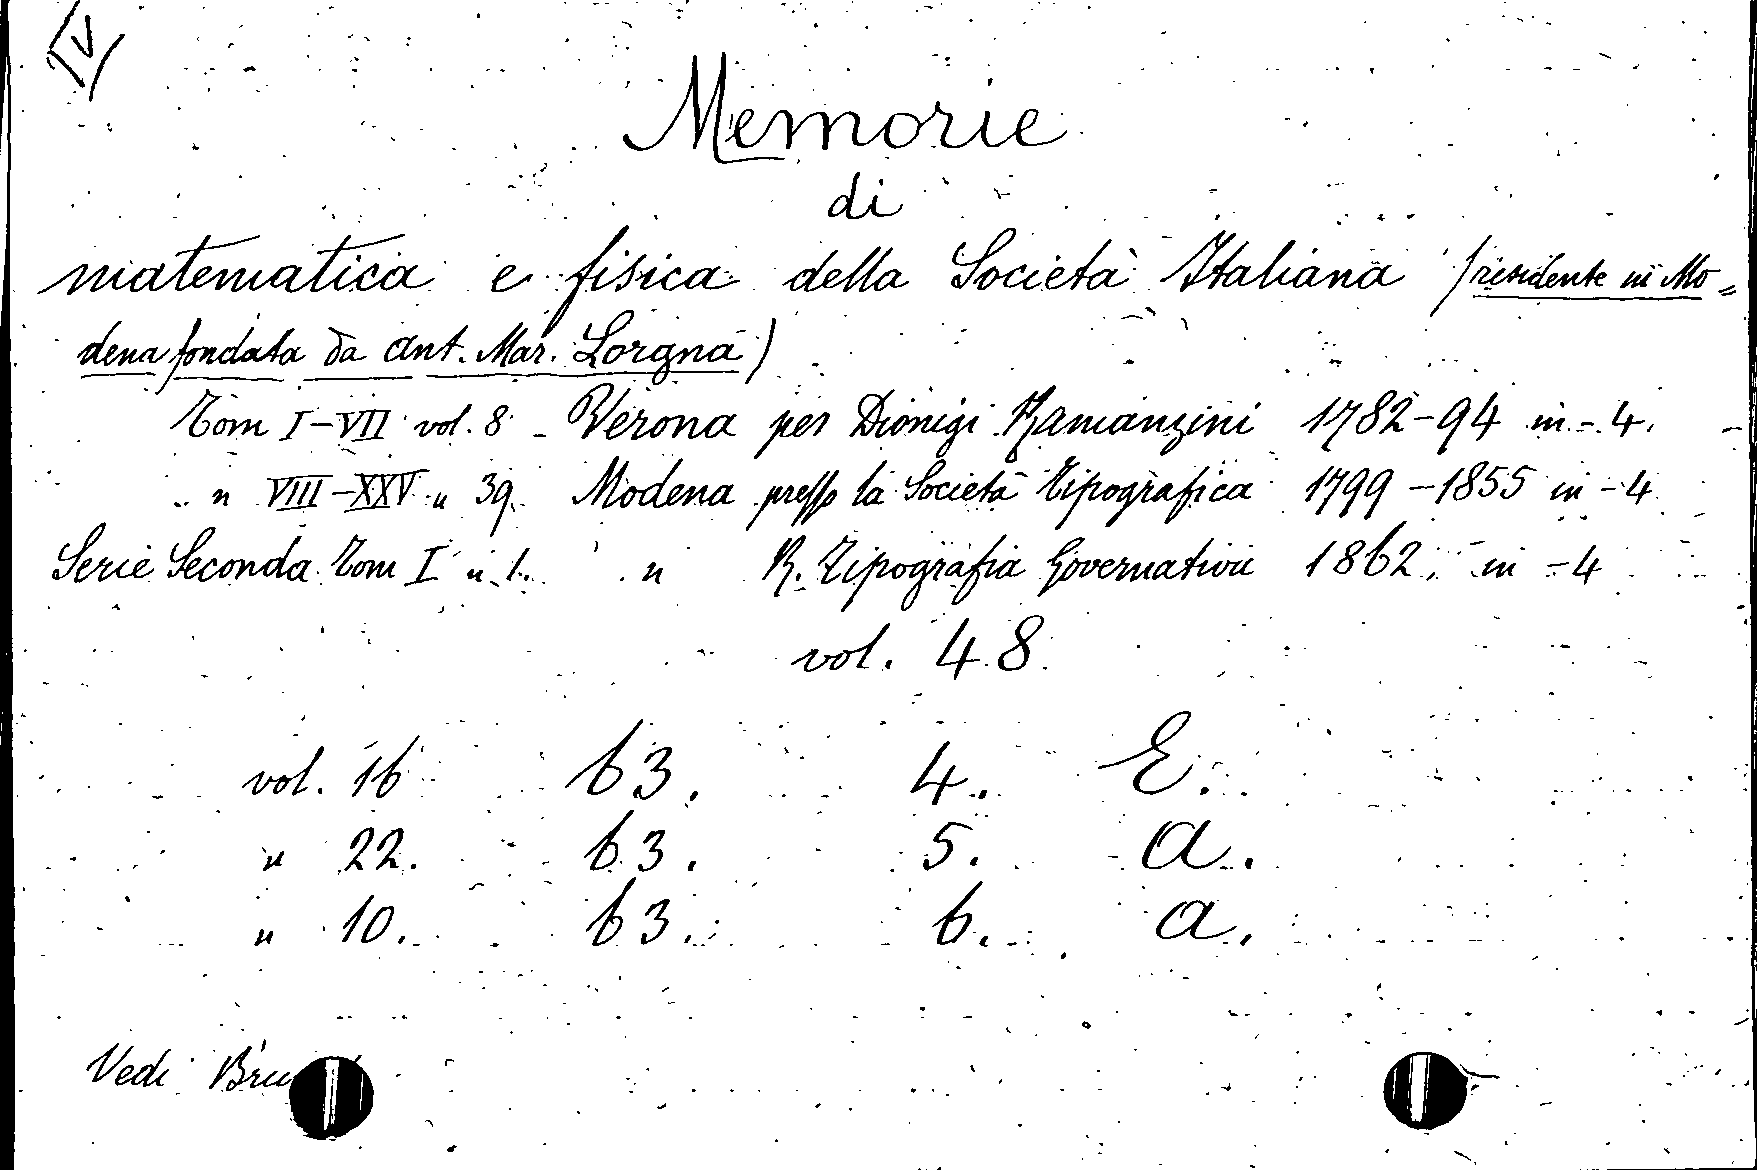 IV
Memorie
di
matematica e fisica della Società Italiana (residente in Mo=
dena fondata da Ant. Mar. Lorgna)
Tom I-VII vol. 8 - Verona per Dionigi Ramanzini 1782-94 in-4.
" VIII-XXV " 39. Modena presso la Società Tipografica 1799-1855 in-4
Serie Seconda Tom I " 1. " R. Tipografia Governativa 1862. in-4
vol. 48.
vol. 16 63. 4. E.
" 22. 63. 5. a.
" 10. 63. 6. a.
Vedi